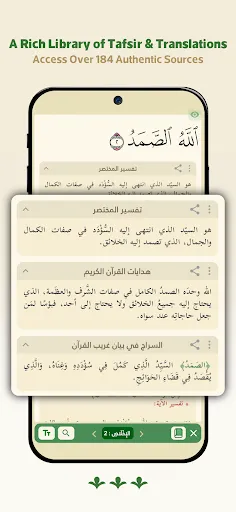 A Rich Library of Tafsir & Translations
Access Over 184 Authentic Sources
ٱللَّهُ ٱلصَّمَدُ ٢
تفسير المختصر
هو السيّد الذي انتهى إليه السُّؤْدَد في صفات الكمال
تفسير المختصر
هو السيّد الذي انتهى إليه السُّؤْدَد في صفات الكمال
والجمال، الذي تصمد إليه الخلائق.
هدايات القرآن الكريم
الله وحدَه الصمدُ الكامل في صفات الشَّرف والعظَمة، الذي
يحتاج إليه جميعُ الخلائق ولا يحتاج إلى أحد، فبُؤسًا لمَن
جعل حاجاتِه عند سواه.
السراج في بيان غريب القرآن
﴿الصَّمَدُ﴾ السَّيِّدُ الَّذِي كَمُلَ فِي سُؤْدَدِهِ وَغِنَاهُ، وَالَّذِي
يُقْصَدُ فِي قَضَاءِ الحَوَائِجِ.
تفسير الآية:
الإخلاص: 2